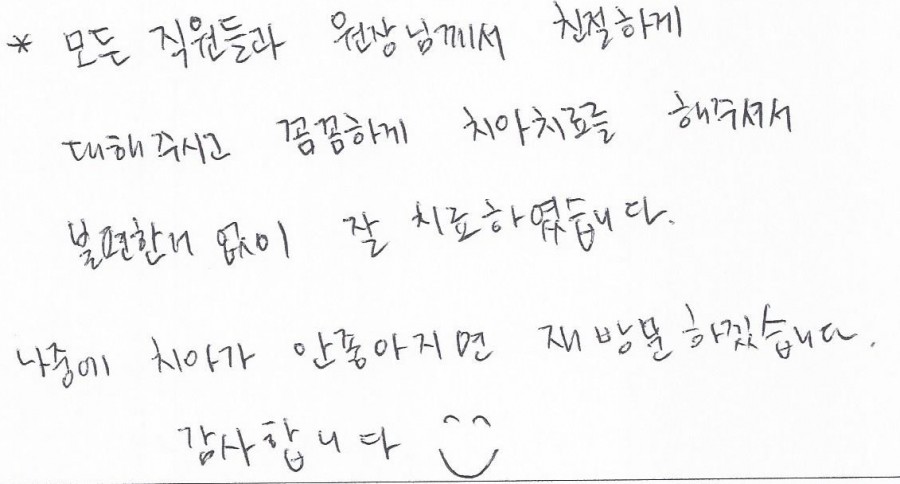 * 모든 직원들과 원장님께서 친절하게
대해주시고 꼼꼼하게 치아치료를 해주셔서
불편한거 없이 잘 치료하였습니다.
나중에 치아가 안좋아지면 재방문하겠습니다.
감사합니다